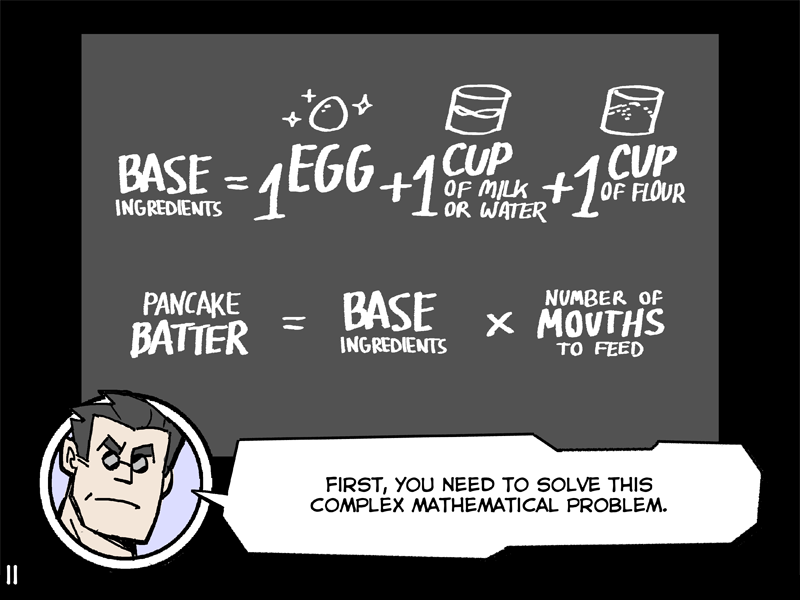 BASE INGREDIENTS = 1 EGG + 1 CUP OF MILK OR WATER + 1 CUP OF FLOUR
PANCAKE BATTER = BASE INGREDIENTS × NUMBER OF MOUTHS TO FEED
FIRST, YOU NEED TO SOLVE THIS
COMPLEX MATHEMATICAL PROBLEM.
11